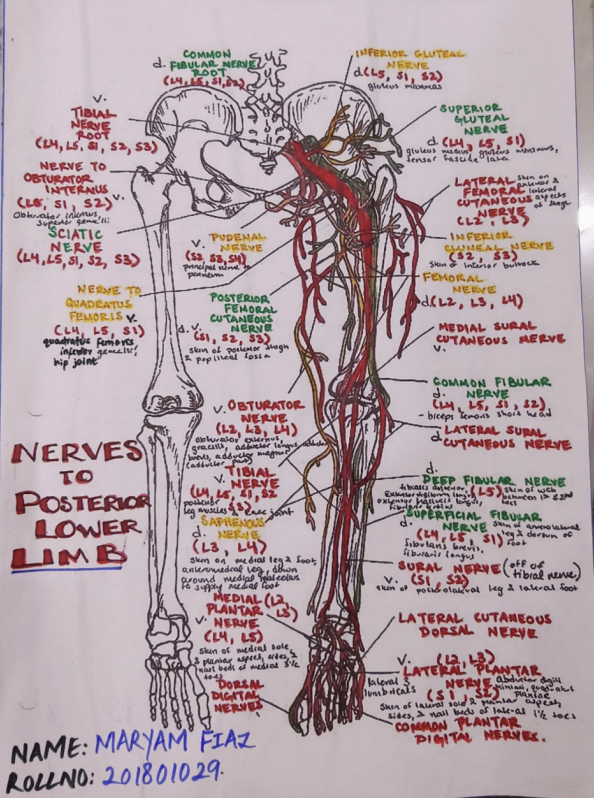 COMMON
d. FIBULAR NERVE
ROOT
(L4, L5, S1, S2)
V.
TIBIAL
NERVE
ROOT
(L4, L5, S1, S2, S3)
NERVE TO
OBTURATOR
INTERNUS V.
(L5, S1, S2)
Obturator internus,
superior gemelli:
SCIATIC
NERVE
(L4, L5, S1, S2, S3)
V. PUDENAL
NERVE
(S2, S3, S4)
principal nerve to
perineum
NERVE TO
QUADRATUS
FEMORIS V.
(L4, L5, S1)
quadratus femoris
inferior gemelli:
hip joint
POSTERIOR
FEMORAL
CUTANEOUS
d. V. NERVE
(S1, S2, S3)
skin of posterior thigh
& popliteal fossa
INFERIOR GLUTEAL
NERVE
d(L5, S1, S2)
gluteus maximus
SUPERIOR
GLUTEAL
NERVE
d. (L4, L5, S1)
gluteus medius, gluteus minimus,
tensor fasciae lata
LATERAL skin on
FEMORAL anterior & lateral
CUTANEOUS aspects
NERVE of thigh
(L2, L3)
INFERIOR
CLUNEAL NERVE
(S2, S3)
skin of inferior buttock
FEMORAL
NERVE
d(L2, L3, L4)
MEDIAL SURAL
CUTANEOUS NERVE
V.
COMMON FIBULAR
d. NERVE
(L4, L5, S1, S2)
- biceps femoris short head
d.
LATERAL SURAL
CUTANEOUS NERVE
V. OBTURATOR
NERVE
(L2, L3, L4)
obturator externus,
gracilis, adductor longus, adductor
brevis, adductor magnus
(adductor part)
V. TIBIAL
NERVE
(L4, L5, S1, S2
S3)
posterior
leg muscles & knee joint
SAPHENOUS
d. NERVE
(L3, L4)
skin on medial leg & foot,
anteromedial leg, down
around medial malleolus
to supply medial foot
MEDIAL (L2
PLANTAR L3)
V. NERVE
(L4, L5)
skin of medial sole,
& plantar aspect, sides, &
nail beds of medial 3½
toes
DORSAL
DIGITAL
NERVES
d.
DEEP FIBULAR NERVE
tibialis anterior (L5) skin of web
Extensor digitorum longus, between 1st & 2nd
extensor hallucis longus, toes
fibularis tertius
SUPERFICIAL FIBULAR
d. NERVE skin of anterolateral
(L4, L5, S1) leg & dorsum of
fibularis brevis, foot
fibularis longus
SURAL NERVE (off of
V. (S1, S2) tibial nerve)
skin of posterolateral leg & lateral foot
LATERAL CUTANEOUS
DORSAL NERVE
V. (L2, L3)
LATERAL PLANTAR
lateral 3 NERVE Abductor digiti
lumbricals (S1, S2) minimi, quadratus
plantae
Skin of lateral sole & plantar aspect,
sides, & nail beds of lateral 1½ toes
COMMON PLANTAR
DIGITAL NERVES.
NERVES
TO
POSTERIOR
LOWER
LIMB
NAME: MARYAM FIAZ
ROLLNO: 201801029.